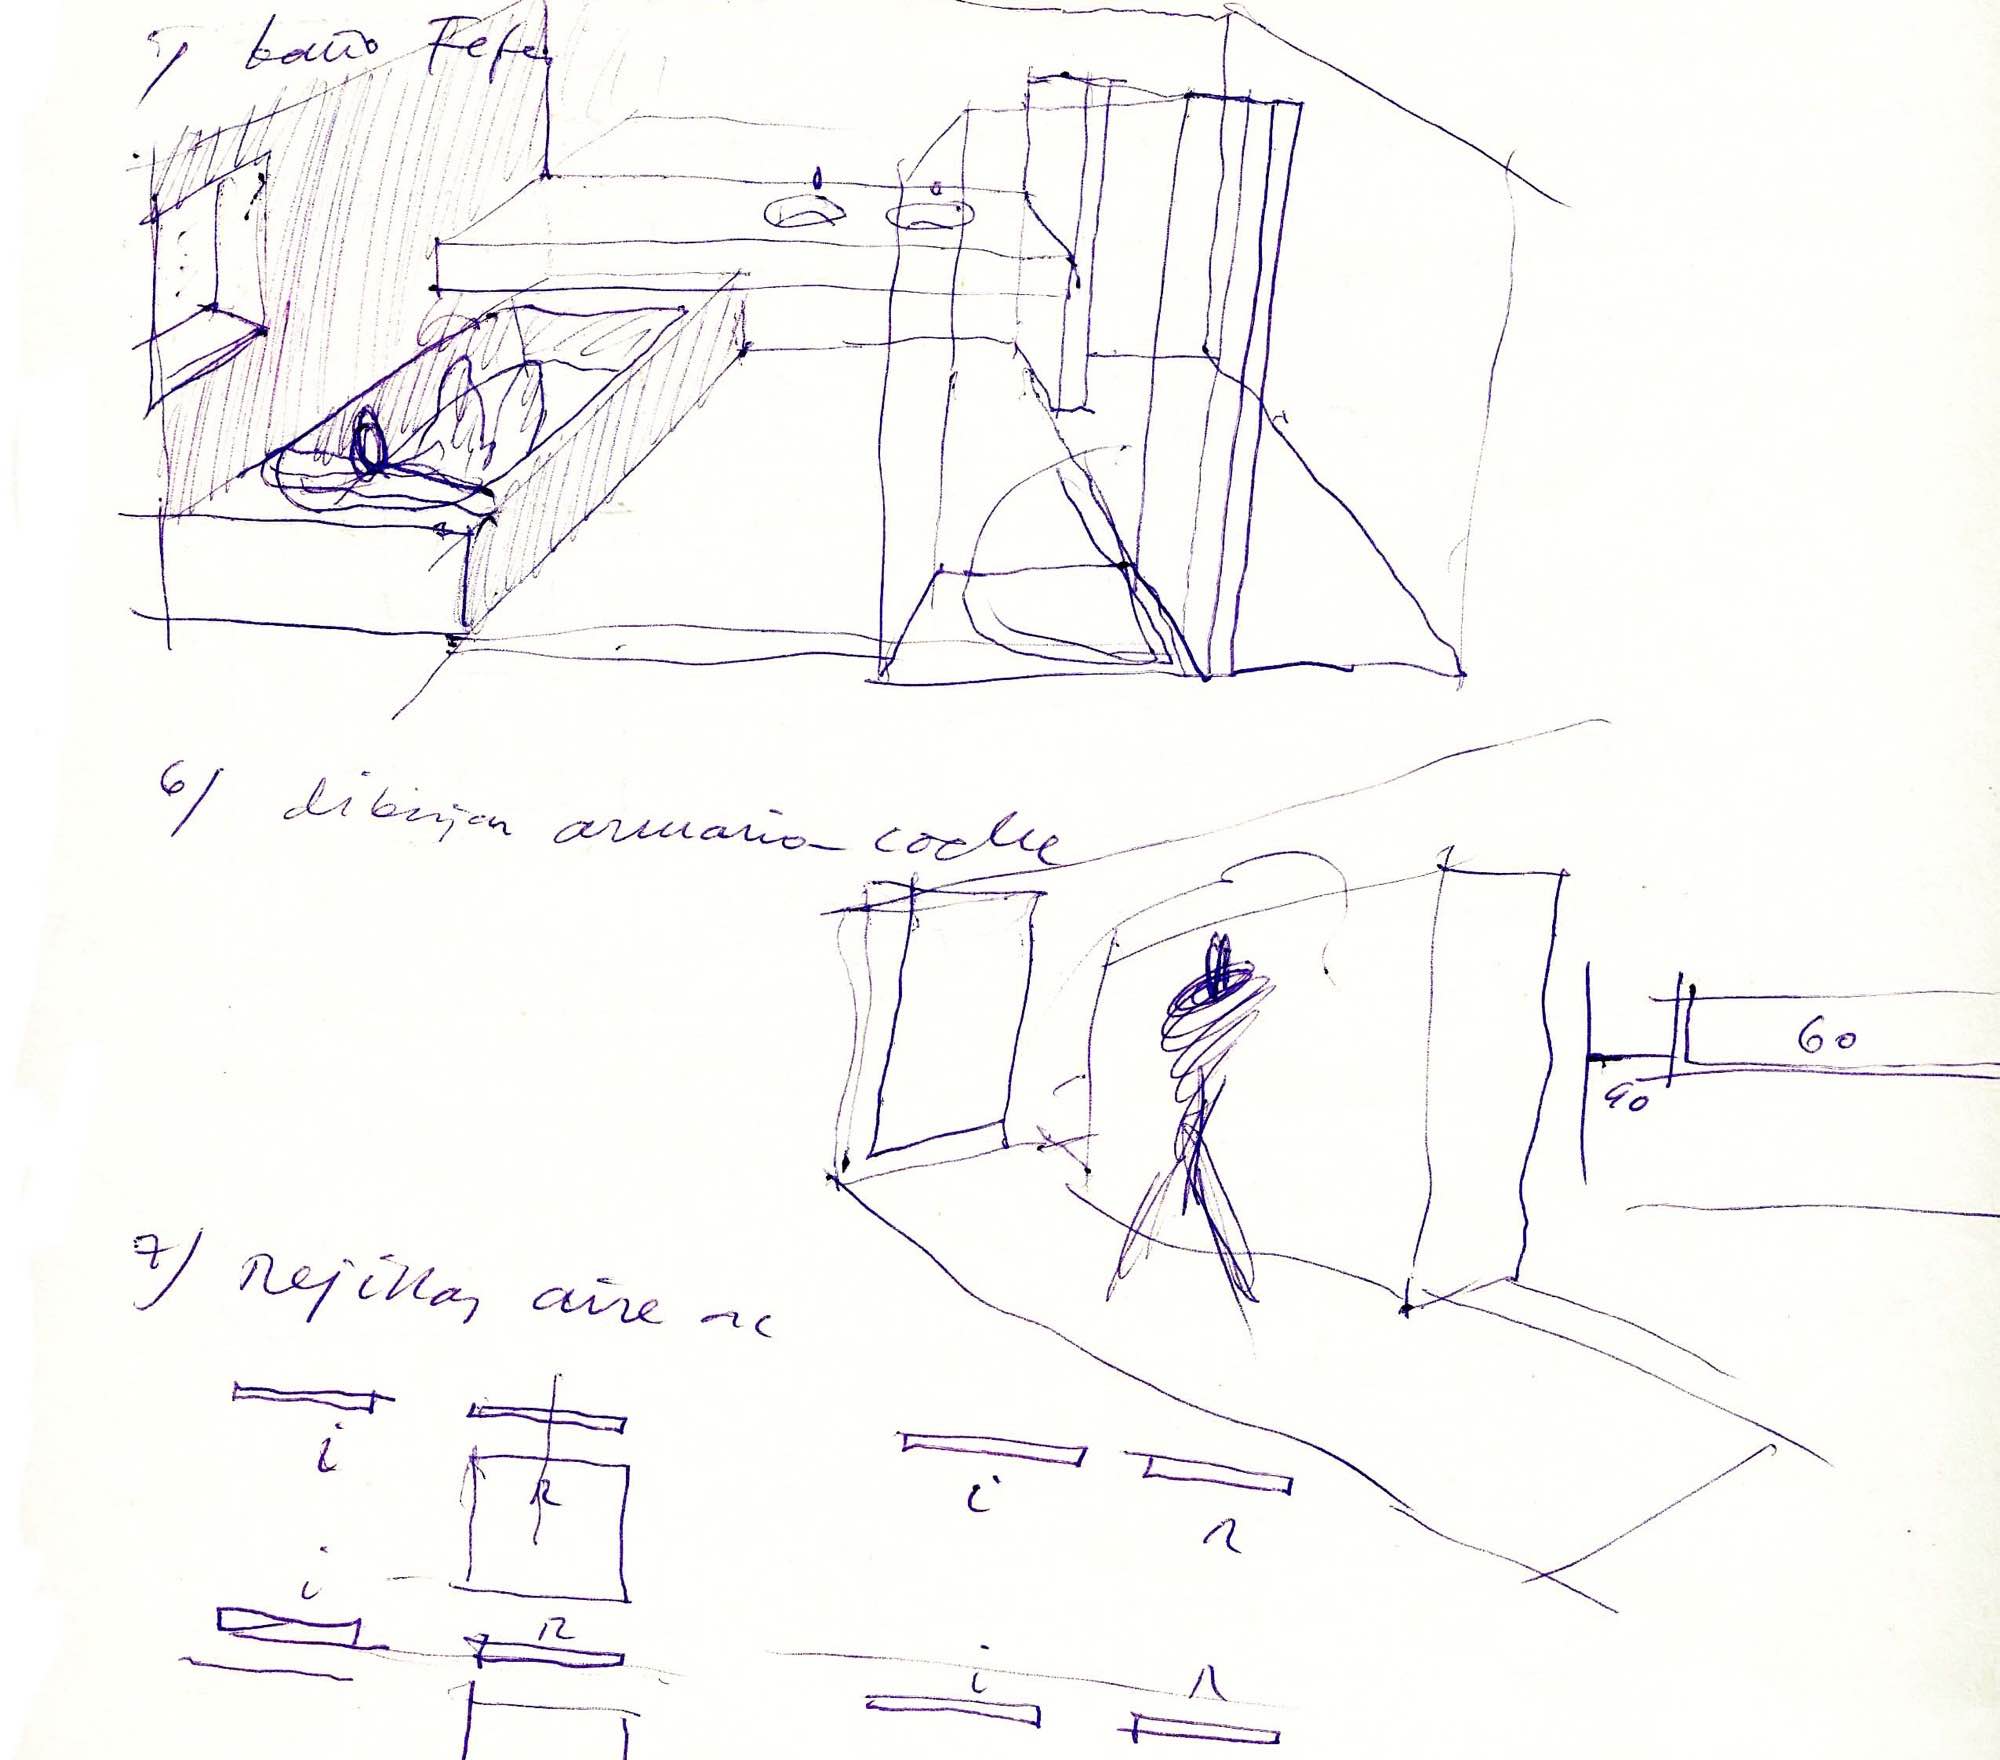 5) baño Fefe
6) dibujar armario coche
60
40
7) rejillas aire ac
i
R
i
r
i
R
i
r